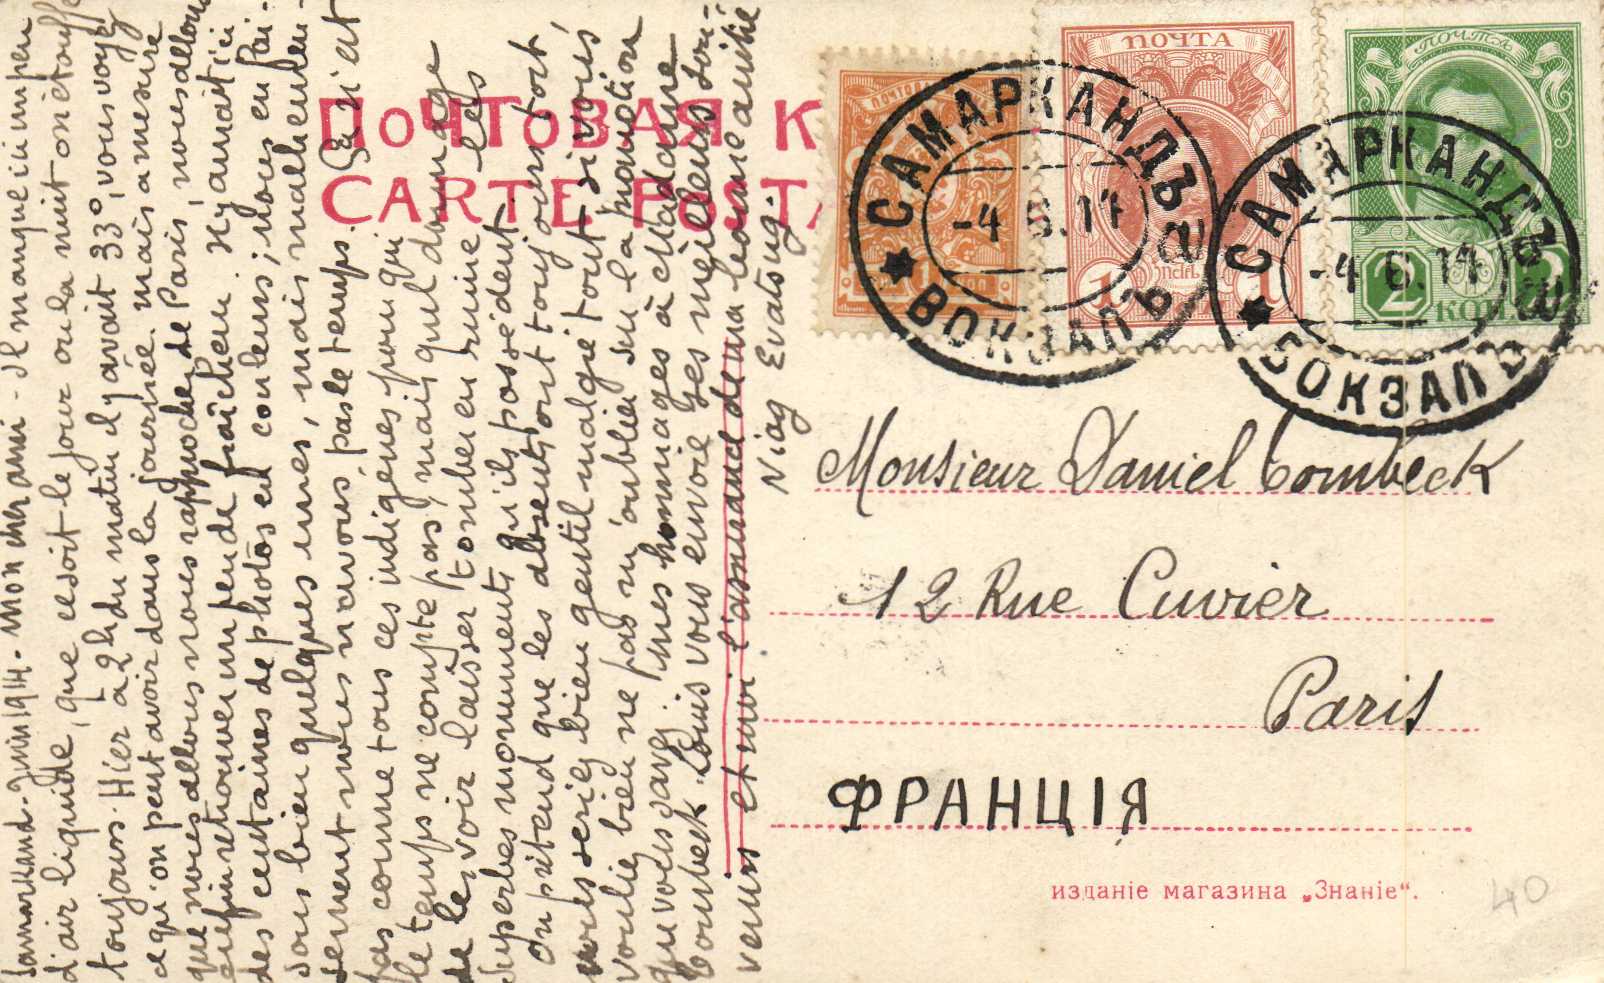 Samarkand - Juin 1914 - Mon cher ami - Il manque ici un peu
d'air liquide, que ce soit le jour ou la nuit on étouffe
toujours. Hier à 2h du matin il y avait 33°, vous voyez
ce qu'on peut avoir dans la journée. mais à mesure
que nous allons nous rapprocher de Paris, nous allons
enfin retrouver un peu de fraîcheur. Il y aurait ici
des centaines de photos en couleurs; nous en fai-
sons bien quelques unes, mais malheureu-
sement nous n'avons pas le temps. Ce n'est
pas comme tous ces indigènes pour qui
le temps ne compte pas, mais quel dommage
de les voir laisser tomber en ruine les
superbes monuments qu'ils possèdent.
On prétend que les absents ont toujours tort
vous seriez bien gentil malgré tout si vous
vouliez bien ne pas m'oublier sur la promotion
que vous savez. Mes hommages à Madame
Combeck. Louis vous envoie ses meilleurs sou-
venirs et moi l'assurance de ma bonne amitié
ПОЧТОВАЯ К
CARTE POSTA
ПОЧТА
1
КОП.
ПОЧТА
1
ПОЧТА
2
КОП
САМАРКАНДЪ
ВОКЗАЛЪ
-4 6.14
САМАРКАНДЪ
ВОКЗАЛЪ
-4 6.14
Monsieur Daniel Combeck
12 Rue Cuvier
Paris
ФРАНЦІЯ
изданіе магазина „Знаніе“.
40